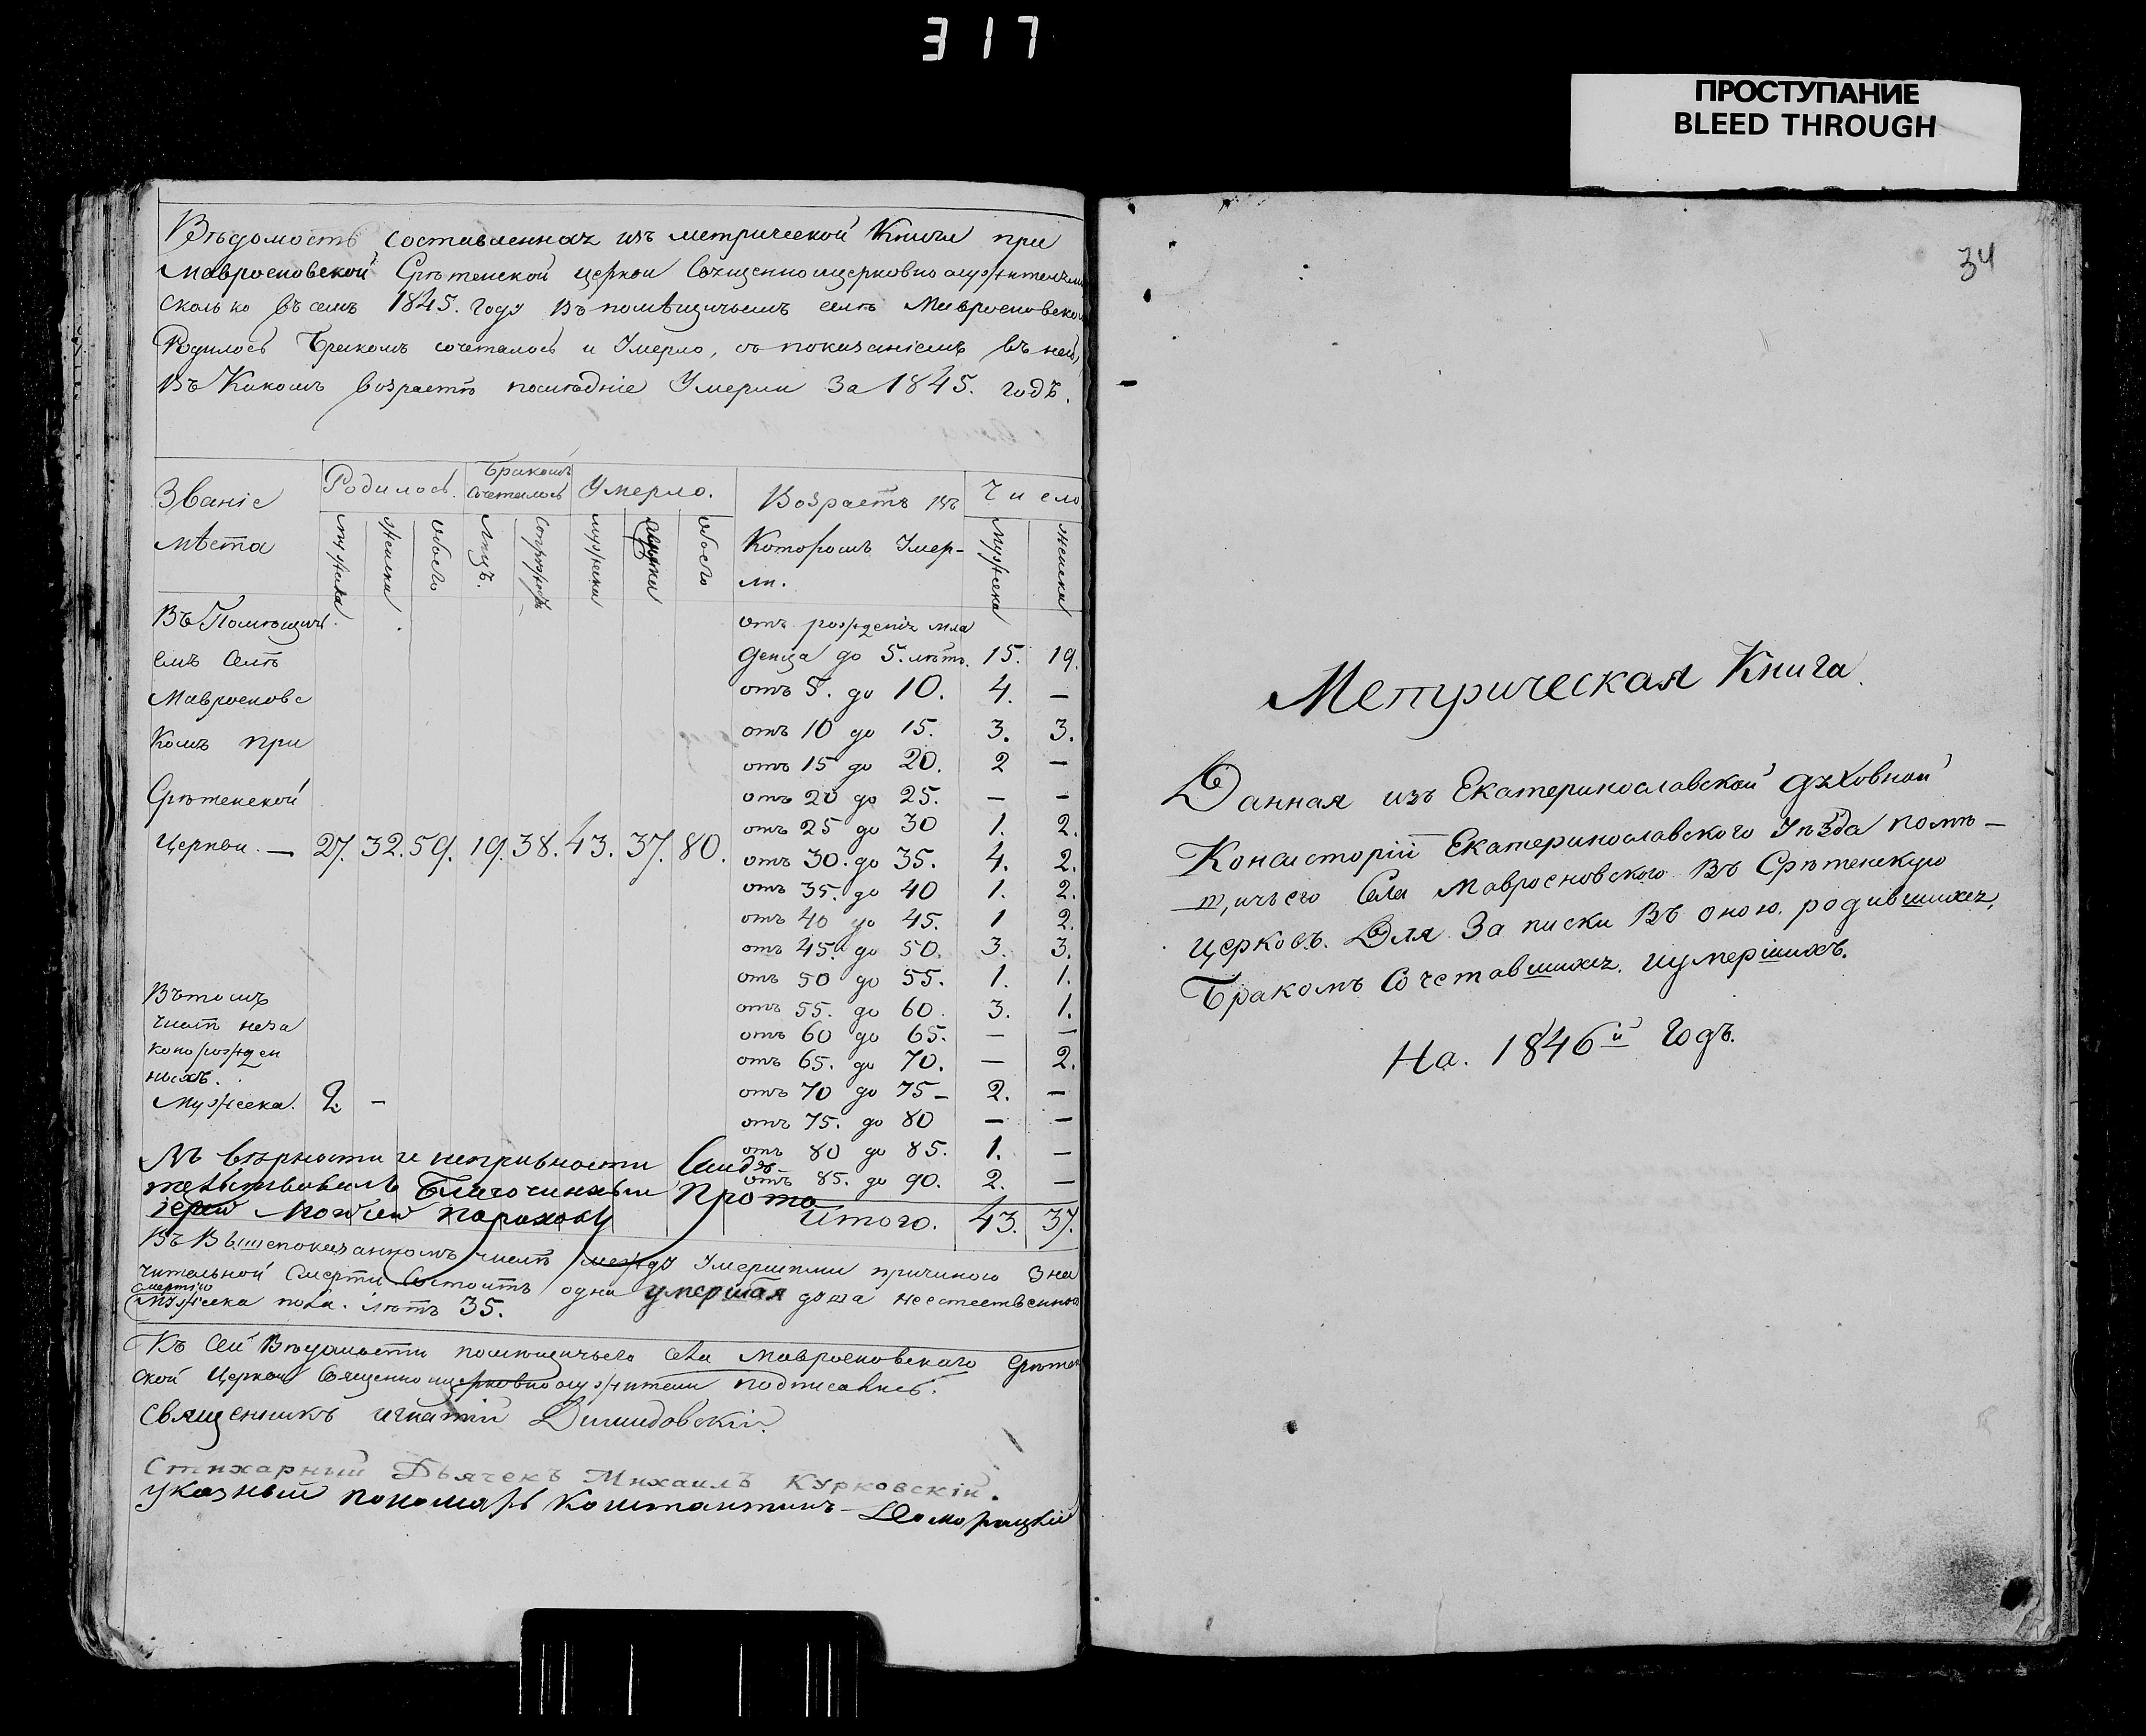 317
ПРОСТУПАНИЕ
BLEED THROUGH
Вѣдомость составленная изъ метрической Книги при
Мавроеновской Срѣтенской церкви Священноицерковнослужителями
сколько въ семъ 1845. году Въ помѣщичьемъ селѣ Мавроеновском
Родилось Бракомъ сочеталось и Умерло, съ показаніемъ въ ней,
Въ Какомъ возрастѣ послѣдніе Умерли За 1845. годъ.
Званіе
мѣста
Родилось.
Бракомъ сочеталось
Умерло.
Возрастъ въ
Которомъ Умер-
ли.
Число
мужеска
Женска
обоего
Лицъ.
Супружр.
мужеска
обоего
мужеска
женска
Въ Помѣщичь
емъ Селѣ
Мавроеновс
Комъ при
Срѣтенской
Церкви. — 27. 32. 59. 19. 38. 43. 37. 80.
отъ рожденія мла
денца до 5. лѣтъ. 15. 19.
отъ 5. до 10. 4. —
отъ 10 до 15. 3. 3.
отъ 15 до 20. 2 —
отъ 20 до 25. — —
отъ 25 до 30 1. 2.
отъ 30. до 35. 4. 2.
отъ 35. до 40 1. 2.
отъ 40 до 45. 1 2.
отъ 45. до 50. 3. 3.
отъ 50 до 55. 1. 1.
отъ 55. до 60. 3. 1.
отъ 60 до 65. — —
отъ 65. до 70. — 2.
отъ 70 до 75 — 2. —
отъ 75. до 80 — —
отъ 80 до 85. 1. —
отъ 85. до 90. 2. —
Итого. 43. 37.
Вътомъ
числѣ неза
конорожден
ныхъ.
Мужеска. 2. —
Въ вѣрности и исправности Свидѣ
тельствовалъ Благочинный Прото
іерей
Въ Вышепоказанномъ числѣ между Умершими причиною Зна
чительной Смерти Состоитъ одна умершая душа неестественною
смертію
Мужеска пола. лѣтъ 35.
Къ Сей Вѣдомости помѣщичьего села Мавроеновскаго Срѣтен
ской Церкви Священноицерковнослужители подписались.
Священникъ игнатій
Стихарный Дьячекъ Михаилъ Курковскій.
указный пономарь Константинъ Доморацкій
34
Метрическая Книга.
Данная изъ Екатеринославской духовной
Консисторіи Екатеринославского Уѣзда помѣ —
щичьего Села Мавроеновского Въ Срѣтенскую
церковъ. Для За писки Въ оною. родившихся,
Бракомъ Сочетавшихся. иумершихъ.
На. 1846й Годъ.